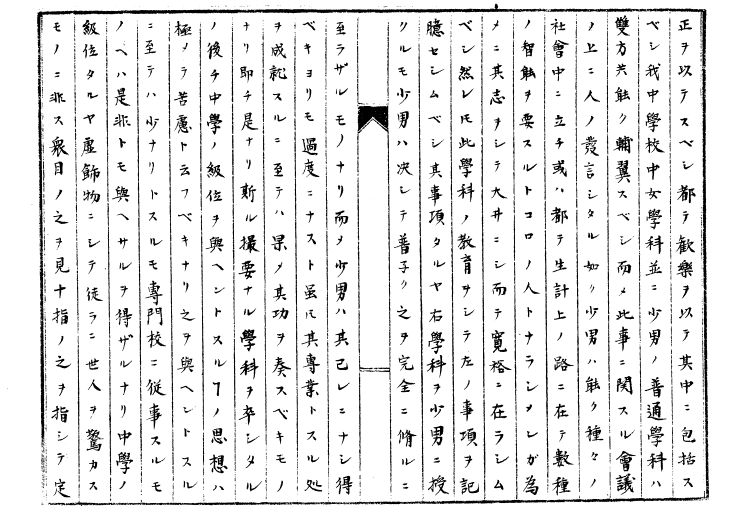 正ヲ以テスベシ都テ歓樂ヲ以テ其中ニ包括ス
ベシ我中學校中女學科並ニ少男ノ普通學科ハ
雙方共能ク輔翼スベシ而メ此事ニ関スル會議
ノ上ニ人ノ發言シタル如ク少男ハ能ク種々ノ
社會中ニ立チ或ハ都テ生計上ノ路ニ在テ數種
ノ智能ヲ要スルトコロノ人トナラシメンガ為
メニ其志ヲシテ大井ニシ而テ寛裕ニ在ラシム
ベシ然レ𪜈此學科ノ教育ヲシテ左ノ事項ヲ記
臆セシムベシ其事項タルヤ右學科ヲ少男ニ授
クルモ少男ハ决シテ普子ク之ヲ完全ニ脩ルニ
至ラザルモノナリ而メ少男ハ其己レニナシ得
ベキヨリモ過度ニナスト雖𪜈其專業トスル処
ヲ成就スルニ至テハ果メ其功ヲ奏スベキモノ
ナリ即チ是ナリ斯ル撮要ナル學科ヲ卒シタル
ノ後チ中學ノ級位ヲ與ヘントスルヿノ思想ハ
極メテ苦慮ト云フベキナリ之ヲ與ヘントスル
ニ至テハ少ナリトスルモ專門校ニ從事スルモ
ノヘハ是非トモ與ヘサルヲ得ザルナリ中學ノ
級位タルヤ虚飾物ニシテ徒ラニ世人ヲ驚カス
モノニ非ス衆目ノ之ヲ見十指ノ之ヲ指シテ定